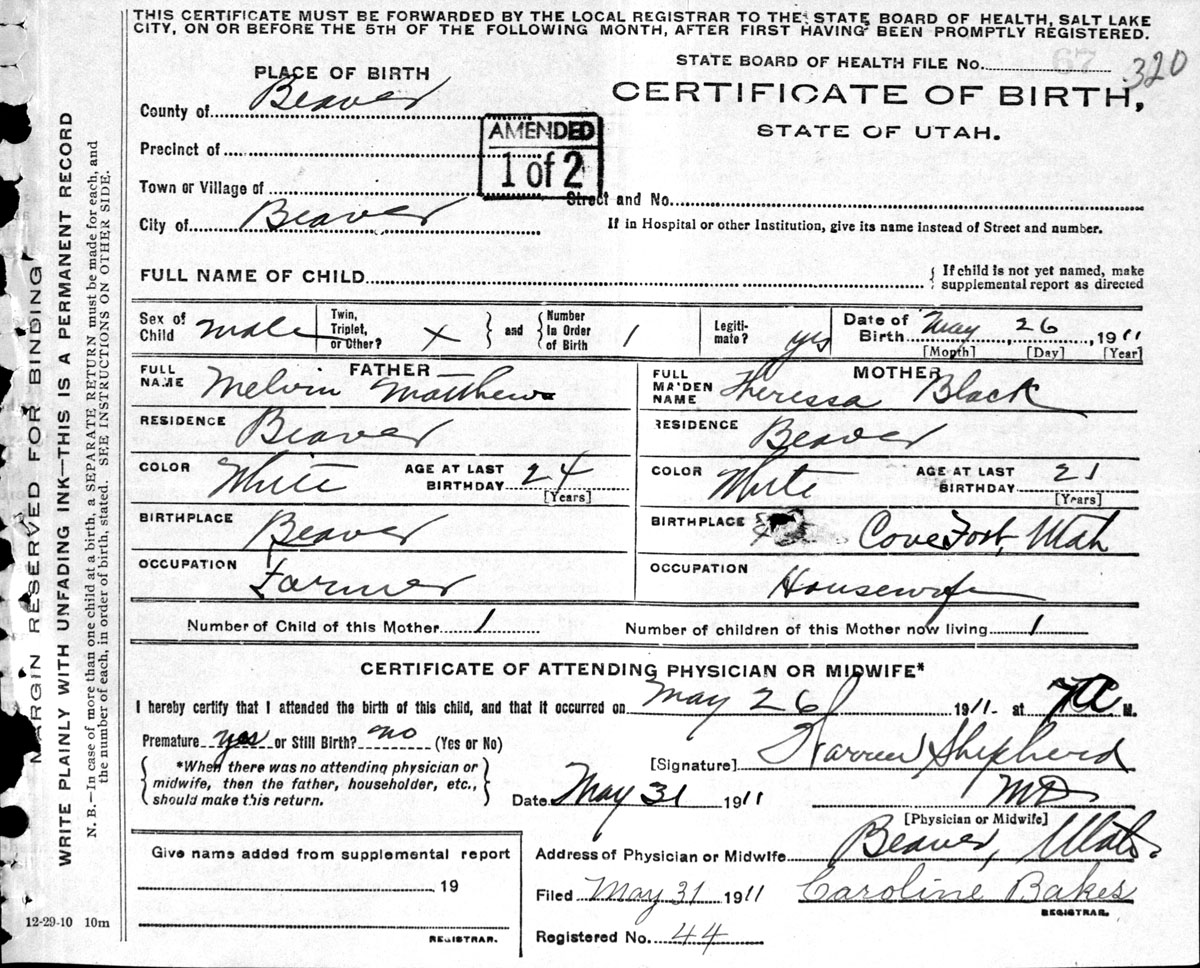 THIS CERTIFICATE MUST BE FORWARDED BY THE LOCAL REGISTRAR TO THE STATE BOARD OF HEALTH, SALT LAKE
CITY, ON OR BEFORE THE 5TH OF THE FOLLOWING MONTH, AFTER FIRST HAVING BEEN PROMPTLY REGISTERED.
STATE BOARD OF HEALTH FILE No. 320
CERTIFICATE OF BIRTH,
STATE OF UTAH.
PLACE OF BIRTH
County of Beaver
AMENDED
1 of 2
Precinct of
Town or Village of
Street and No.
City of Beaver
If in Hospital or other Institution, give its name instead of Street and number.
FULL NAME OF CHILD
{ If child is not yet named, make
supplemental report as directed
Sex of Child male
Twin, Triplet, or Other? X } and { Number In Order of Birth 1
Legiti-mate? yes
Date of Birth May, 26, 1911
[Month] [Day] [Year]
FATHER
FULL NAME Melvin Matthews
RESIDENCE Beaver
COLOR White AGE AT LAST BIRTHDAY 24
[Years]
BIRTHPLACE Beaver
OCCUPATION Farmer
MOTHER
FULL MAIDEN NAME Theressa Black
RESIDENCE Beaver
COLOR White AGE AT LAST BIRTHDAY 21
[Years]
BIRTHPLACE Cove Fort, Utah
OCCUPATION Housewife
Number of Child of this Mother 1 Number of children of this Mother now living 1
CERTIFICATE OF ATTENDING PHYSICIAN OR MIDWIFE*
I hereby certify that I attended the birth of this child, and that it occurred on May 26 1911 at 7 A M.
Premature yes or Still Birth? no (Yes or No)
{ *When there was no attending physician or
midwife, then the father, householder, etc.,
should make this return. }
[Signature] Warren Shepherd
Date May 31 1911 MD
[Physician or Midwife]
Address of Physician or Midwife Beaver, Utah.
Filed May 31 1911 Caroline Bakes
REGISTRAR.
Registered No. 44
Give name added from supplemental report
19
REGISTRAR.
12-29-10 10m
MARGIN RESERVED FOR BINDING
WRITE PLAINLY WITH UNFADING INK—THIS IS A PERMANENT RECORD
N. B.—In case of more than one child at a birth, a SEPARATE RETURN must be made for each, and
the number of each, in order of birth, stated. SEE INSTRUCTIONS ON OTHER SIDE.